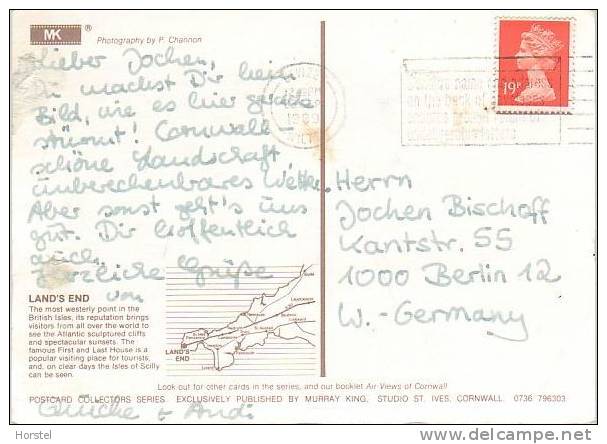 MK ®
Photography by P. Channon
Lieber Jochen,
Du machst Dir kein
Bild, wie es hier
stürmt! Cornwall -
schöne Landschaft,
unberechenbares Wetter.
Aber sonst geht's uns
gut. Dir hoffentlich
auch.
Herzliche Grüße
von
+ Andi
19P
1989
Herrn
Jochen Bischoff
Kantstr. 55
1000 Berlin 12
W.-Germany
LAND'S END
The most westerly point in the
British Isles, its reputation brings
visitors from all over the world to
see the Atlantic sculptured cliffs
and spectacular sunsets. The
famous First and Last House is a
popular visiting place for tourists,
and, on clear days the Isles of Scilly
can be seen.
LAND'S
END
Look out for other cards in the series, and our booklet Air Views of Cornwall
POSTCARD COLLECTORS SERIES. EXCLUSIVELY PUBLISHED BY MURRAY KING, STUDIO ST. IVES, CORNWALL. 0736 796303
Horstel
delcampe.net